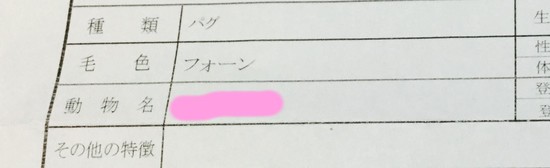 種 類 パグ 生
毛 色 フォーン 性
体
動 物 名 登
登
その他の特徴